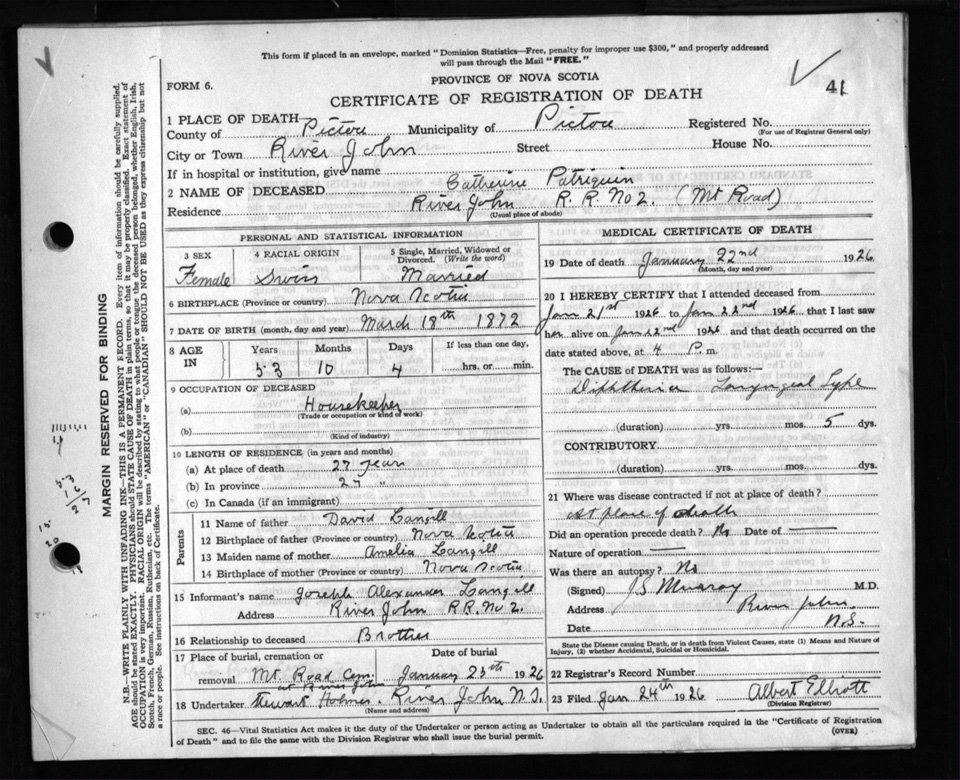 This form if placed in an envelope, marked "Dominion Statistics—Free, penalty for improper use $300," and properly addressed
will pass through the Mail "FREE."
PROVINCE OF NOVA SCOTIA
FORM 6.
CERTIFICATE OF REGISTRATION OF DEATH
41
1 PLACE OF DEATH
County of Pictou Municipality of Pictou Registered No.
(For use of Registrar General only)
City or Town River John Street House No.
If in hospital or institution, give name
2 NAME OF DECEASED Catherine Patriquin
Residence River John R. R. No 2. (Mt Road)
(Usual place of abode)
PERSONAL AND STATISTICAL INFORMATION
3 SEX Female
4 RACIAL ORIGIN Swiss
5 Single, Married, Widowed or Divorced. (Write the word) Married
6 BIRTHPLACE (Province or country) Nova Scotia
7 DATE OF BIRTH (month, day and year) March 18th 1872
8 AGE IN Years 53 Months 10 Days 4 If less than one day, hrs. or min.
9 OCCUPATION OF DECEASED
(a) Housekeeper
(Trade or occupation or kind of work)
(b)
(Kind of industry)
10 LENGTH OF RESIDENCE (in years and months)
(a) At place of death 27 years
(b) In province 27 "
(c) In Canada (if an immigrant)
Parents
11 Name of father David Langill
12 Birthplace of father (Province or country) Nova Scotia
13 Maiden name of mother Amelia Langill
14 Birthplace of mother (Province or country) Nova Scotia
15 Informant's name Joseph Alexander Langill
Address River John R.R. No 2.
16 Relationship to deceased Brother
17 Place of burial, cremation or removal Mt. Road Cem. at River John
Date of burial January 25th 1926
18 Undertaker Stewart Holmes. River John N.S.
(Name and address)
MEDICAL CERTIFICATE OF DEATH
19 Date of death January 22nd 1926
(Month, day and year)
20 I HEREBY CERTIFY that I attended deceased from
Jan 21st 1926 to Jan 22nd 1926 that I last saw
her alive on Jan 22nd 1926 and that death occurred on the
date stated above, at 4 P. m.
The CAUSE of DEATH was as follows:—
Diphtheria Laryngeal Type
(duration) yrs. mos. 5 dys.
CONTRIBUTORY
(duration) yrs. mos. dys.
21 Where was disease contracted if not at place of death?
At place of death
Did an operation precede death? No Date of
Nature of operation
Was there an autopsy? No
(Signed) Murray M.D.
Address River John,
Date N.S.
State the Disease causing Death, or in death from Violent Causes, state (1) Means and Nature of
Injury, (2) whether Accidental, Suicidal or Homicidal.
22 Registrar's Record Number
23 Filed Jan 24th 1926 Albert Elliott
(Division Registrar)
SEC. 46—Vital Statistics Act makes it the duty of the Undertaker or person acting as Undertaker to obtain all the particulars required in the "Certificate of Registration
of Death" and to file the same with the Division Registrar who shall issue the burial permit.
(OVER)
MARGIN RESERVED FOR BINDING
N.B.—WRITE PLAINLY WITH UNFADING INK—THIS IS A PERMANENT RECORD. Every item of information should be carefully supplied.
AGE should be stated EXACTLY. PHYSICIANS should STATE CAUSE OF DEATH in plain terms, so that it may be properly classified. Exact statement of
OCCUPATION is very important. RACIAL ORIGIN will be described by stating to what people or tongue the deceased person belonged, whether English, Irish,
Scotch, French, German, Russian, Ruthenian, etc. The terms "AMERICAN" or "CANADIAN" SHOULD NOT BE USED as they express citizenship but not
a race or people. See instructions on back of Certificate.